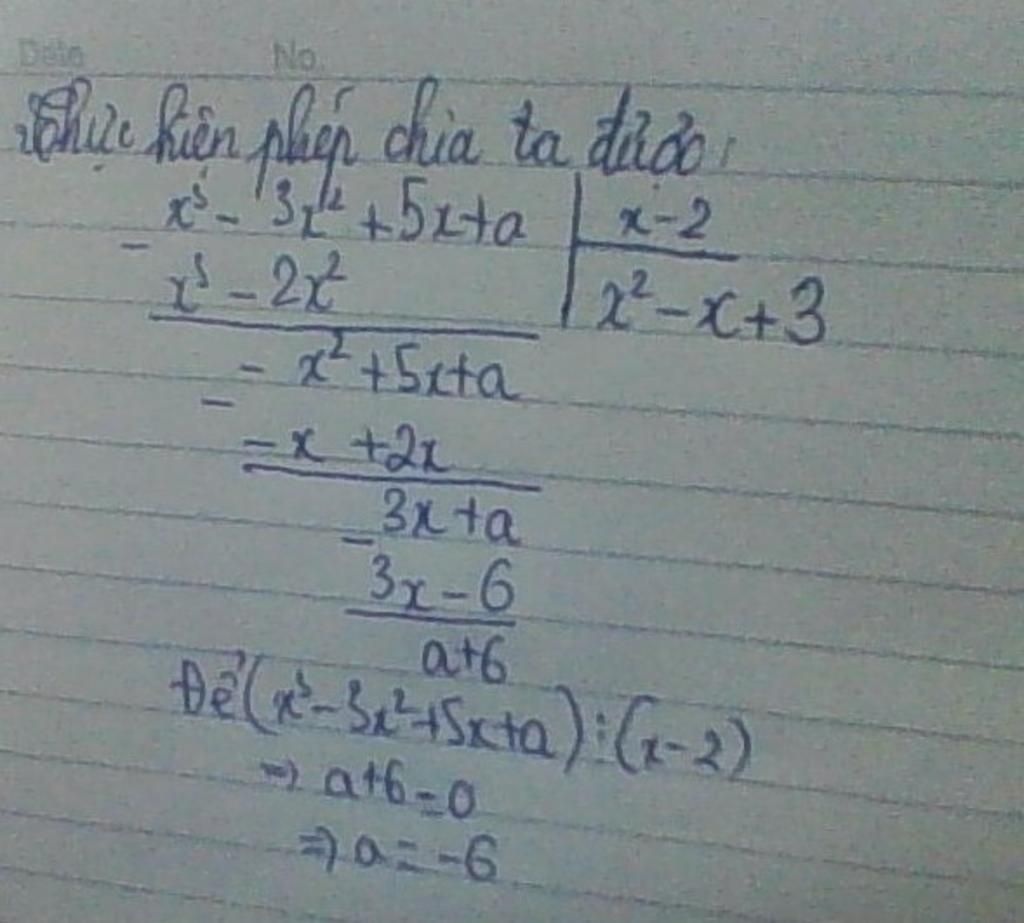 Date No.
Thực hiện phép chia ta được:
x³ - 3x² + 5x + a | x - 2
-
x³ - 2x² | x² - x + 3
- x² + 5x + a
-
- x + 2x
3x + a
-
3x - 6
a + 6
Để (x³ - 3x² + 5x + a) ⋮ (x - 2)
⇒ a + 6 = 0
⇒ a = -6